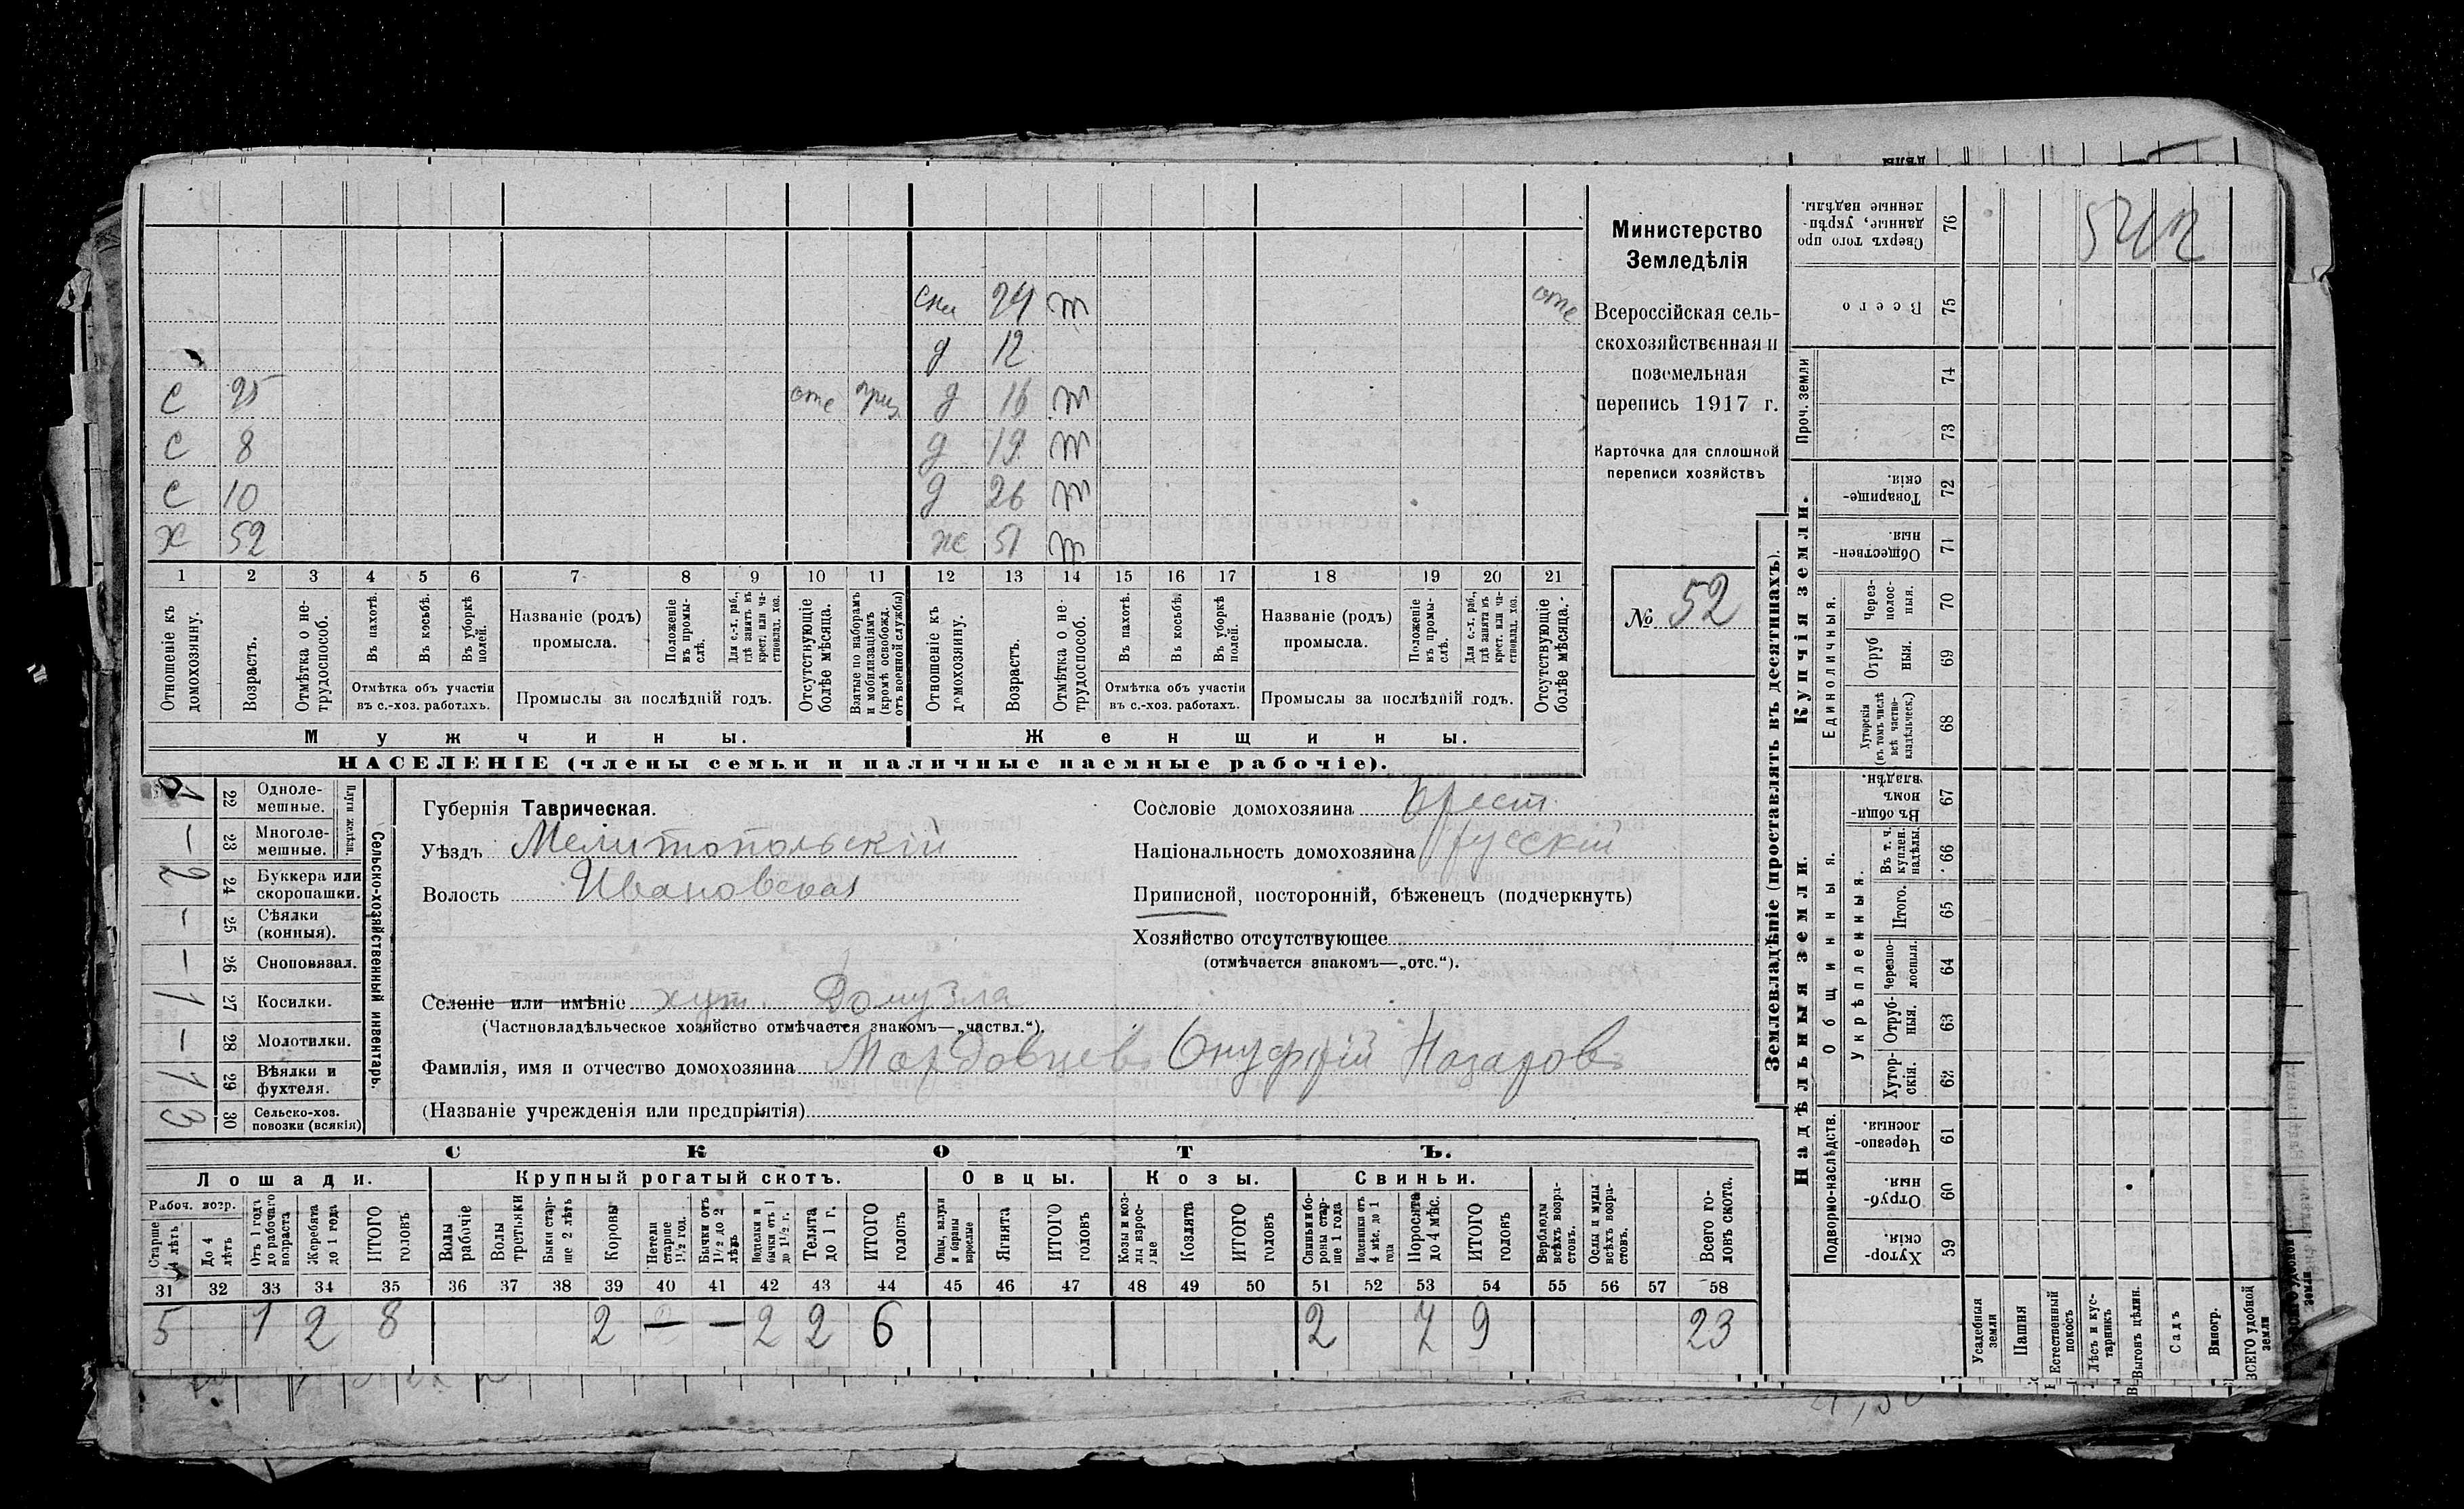 сна 24 m отс
д 12
с 25 отс приз. д 16 m
с 8 д 19 m
с 10 д 26 m
х 52 ж 51 m
1 2 3 4 5 6 7 8 9 10 11 12 13 14 15 16 17 18 19 20 21
Отношеніе къ домохозяину.
Возрастъ.
Отмѣтка о нетрудоспособ.
Въ пахотѣ.
Въ косьбѣ.
Въ уборкѣ полей.
Отмѣтка объ участіи
въ с.-хоз. работахъ.
Названіе (родъ)
промысла.
Положеніе въ промыслѣ.
Для с.-х. раб., гдѣ занятъ въ крест. или частновлад. хоз.
Промыслы за послѣдній годъ.
Отсутствующіе болѣе мѣсяца.
Взятые по наборамъ и мобилизаціямъ (кромѣ освобожд. отъ военной службы)
Отношеніе къ домохозяину.
Возрастъ.
Отмѣтка о нетрудоспособ.
Въ пахотѣ.
Въ косьбѣ.
Въ уборкѣ полей.
Отмѣтка объ участіи
въ с.-хоз. работахъ.
Названіе (родъ)
промысла.
Положеніе въ промыслѣ.
Для с.-х. раб., гдѣ занята въ крест. или частновлад. хоз.
Промыслы за послѣдній годъ.
Отсутствующіе болѣе мѣсяца.
Мужчины. Женщины.
НАСЕЛЕНІЕ (члены семьи и наличные наемные рабочіе).
Министерство
Земледѣлія
Всероссійская сель-
скохозяйственная и
поземельная
перепись 1917 г.
Карточка для сплошной
переписи хозяйствъ
№ 52
Сельско-хозяйственный инвентарь.
Плуги желѣзн.
1 22 Одноле-
мешные.
— 23 Многоле-
мешные.
2 24 Буккера или
скоропашки.
— 25 Сѣялки
(конныя).
— 26 Сноповязал.
1 27 Косилки.
— 28 Молотилки.
1 29 Вѣялки и
фухтеля.
3 30 Сельско-хоз.
повозки (всякія)
Губернія Таврическая.
Уѣздъ Мелитопольскій
Волость Ивановская
Сословіе домохозяина Крест.
Національность домохозяина русскій
Приписной, посторонній, бѣженецъ (подчеркнуть)
Хозяйство отсутствующее
(отмѣчается знакомъ—„отс.“).
Селеніе или имѣніе хут. Домузла
(Частновладѣльческое хозяйство отмѣчается знакомъ—„частвл.“).
Фамилія, имя и отчество домохозяина Мордовцевъ Онуфрій Назаровъ
(Названіе учрежденія или предпріятія)
СКОТЪ.
Лошади. Крупный рогатый скотъ. Овцы. Козы. Свиньи.
Рабоч. возр.
Старше 4 лѣтъ
До 4 лѣтъ
Отъ 1 года до рабочаго возраста
Жеребята до 1 года
ИТОГО головъ
Волы рабочіе
Волы третьяки
Быки старше 2 лѣтъ
Коровы
Нетели старше 1½ год.
Бычки отъ 1½ до 2 лѣтъ
Подтелки и бычки отъ 1 до 1½ г.
Телята до 1 г.
ИТОГО головъ
Овцы, валухи и бараны взрослые
Ягнята
ИТОГО головъ
Козы и козлы взрослые
Козлята
ИТОГО головъ
Свиньи и бороны старше 1 года
Подсвинки отъ 4 мѣс. до 1 года
Поросята до 4 мѣс.
ИТОГО головъ
Верблюды всѣхъ возрастовъ.
Ослы и мулы всѣхъ возрастовъ.
Всего головъ скота.
31 32 33 34 35 36 37 38 39 40 41 42 43 44 45 46 47 48 49 50 51 52 53 54 55 56 57 58
5 1 2 8 2 — — 2 2 6 2 7 9 23
Землевладѣніе (проставлять въ десятинахъ).
Купчія земли.
Надѣльныя земли.
Сверхъ того проданные, укрѣпленные надѣлы. 76
Всего 75
Проч. земли 74
73
Товарищескія. 72
Общественныя. 71
Единоличныя.
Черезполосныя. 70
Отрубныя. 69
Хуторскія (въ томъ числѣ всѣ частновладѣльческ.) 68
Въ общинномъ владѣн. 67
Общинныя.
Укрѣпленныя.
Въ т. ч. куплен. надѣлы. 66
Итого. 65
Черезполосныя. 64
Отрубныя. 63
Хуторскія. 62
Подворно-наслѣдств.
Черезполосныя. 61
Отрубныя. 60
Хуторскія. 59
Усадебныя земли
Пашня
Естественный покосъ
Лѣсъ и кустарникъ
Выгонъ цѣлин.
Садъ
Виногр.
ВСЕГО удобной земли